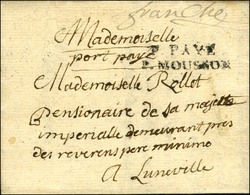 franche
Mademoiselle
port payé
P. PAYÉ
P. MOUSSON
Mademoiselle Rollet
pensionaire de sa majesté
imperialle demeurant pres
des reverens pere minime
a Luneville